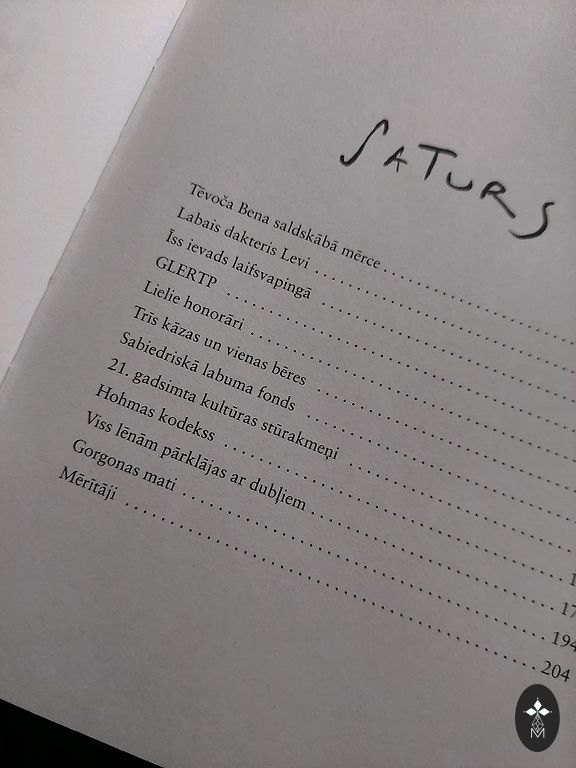 SATURS
Tēvoča Bena saldskābā mērce
Labais dakteris Levi
Īss ievads laifsvapingā
GLERTP
Lielie honorāri
Trīs kāzas un vienas bēres
Sabiedriskā labuma fonds
21. gadsimta kultūras stūrakmeņi
Hohmas kodekss
Viss lēnām pārklājas ar dubļiem
Gorgonas mati 194
Mērītāji 204
M